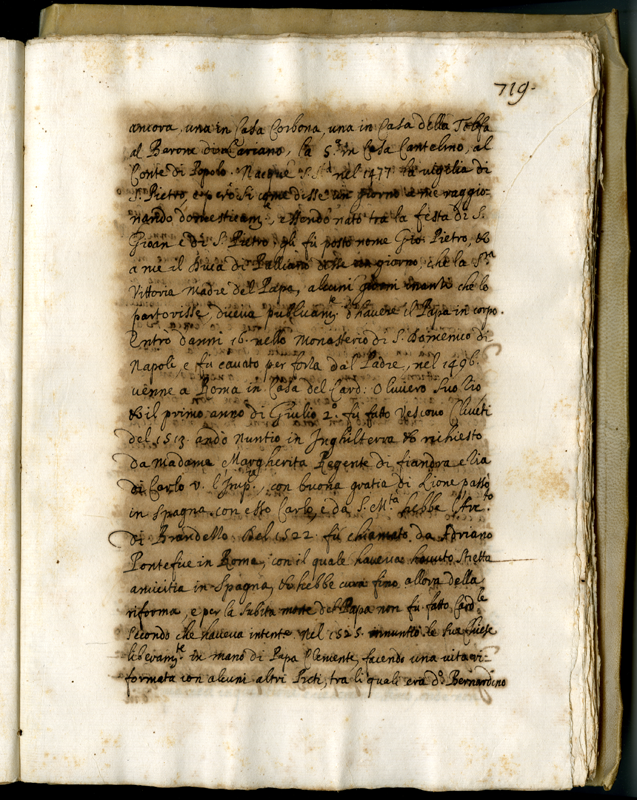 719.
ancora, una in Casa Corbona, una in Casa della Tolfa
al Barone di Cariano, la 5.ª in Casa Cantelmo, al
Conte di Popolo. Nacque S. S.tà nel 1477 la vigilia di
S. Pietro, e però si come disse un giorno a me raggio-
nando domesticam.te, essendo nato trà la festa di S.
Gioan e di S. Pietro, gli fù posto nome Gio: Pietro, &
a me il Duca di Palliano disse un giorno, che la S.ra
Vittoria Madre del Papa, alcuni giorni inanti che lo
partorisse, diceva publicam.te d'havere il Papa in corpo.
Entrò d'anni 16. nello Monasterio di S. Domenico di
Napoli e fù cavato per forza dal Padre, nel 1496.
venne a Roma in Casa del Card: Oliviero suo Zio
& il primo anno di Giulio 2.º fù fatto Vescovo Chieti
del 1513 andò Nuntio in Inghilterra & richiesto
da Madama Margherita Regente di fiandra e Zia
di Carlo V. l'Imp.re, con buona gratia di Lione passò
in Spagna con esso Carlo, e da S. M.tà hebbe l'Arc.to
di Brandello. Del 1522 fù chiamato da Adriano
Pontefice in Roma, con il quale haveva havuto stretta
amicitia in Spagna, & hebbe cura fino allora della
riforma, e per la subita morte del Papa non fù fatto Card.le
secondo che haveva intento. Nel 1525. rinuntiò le sue Chiese
liberam.te in mano di Papa Clemente, facendo una vita ri-
formata con alcuni altri Preti, tra li quali era D. Bernardino